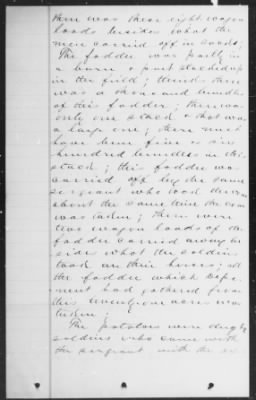 there was these eight wagon
loads besides what the
men carried off in sacks;
The fodder was partly in
a barn & part stacked up
in the field; thinks there
was a thousand bundles
of this fodder; there was
only one stack & that was
a large one; there must
have been five or six
hundred bundles in this
stack; this fodder was
carried off by the same
sergeant who took
about the same time the corn
was taken; there were
two wagon loads of the
fodder carried away be
sides what the soldiers
took on their horses; all
the fodder which
had gathered from
this twenty-one acres was
taken;
The potatoes were dug by
soldiers who came with
the sergeant with the